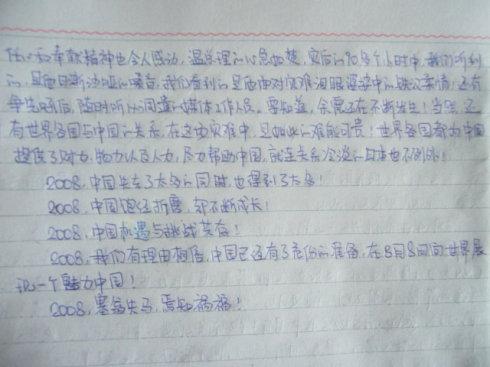 体恤和奉献精神也令人感动，温总理的心急如焚，灾后的70多个小时中，我们听到
的，是他日渐沙哑的嗓音，我们看到的是他面对灾难泪眼婆娑中的缕缕柔情！还有
争先恐后，随时听从调遣的媒体工作人员。要知道，余震还在不断发生！当然，还
有世界各国与中国的关系，在这场灾难中，是如此的难能可贵！世界各国都为中国
提供了财力，物力以及人力，尽力帮助中国，就连关系冷淡的日本也不例外！
2008，中国失去了太多的同时，也得到了太多！
2008，中国饱经折磨，却不断成长！
2008，中国机遇与挑战并存！
2008，我们有理由相信，中国已经有了充份的准备，在8月8日向世界展
现一个魅力中国！
2008，塞翁失马，焉知祸福！